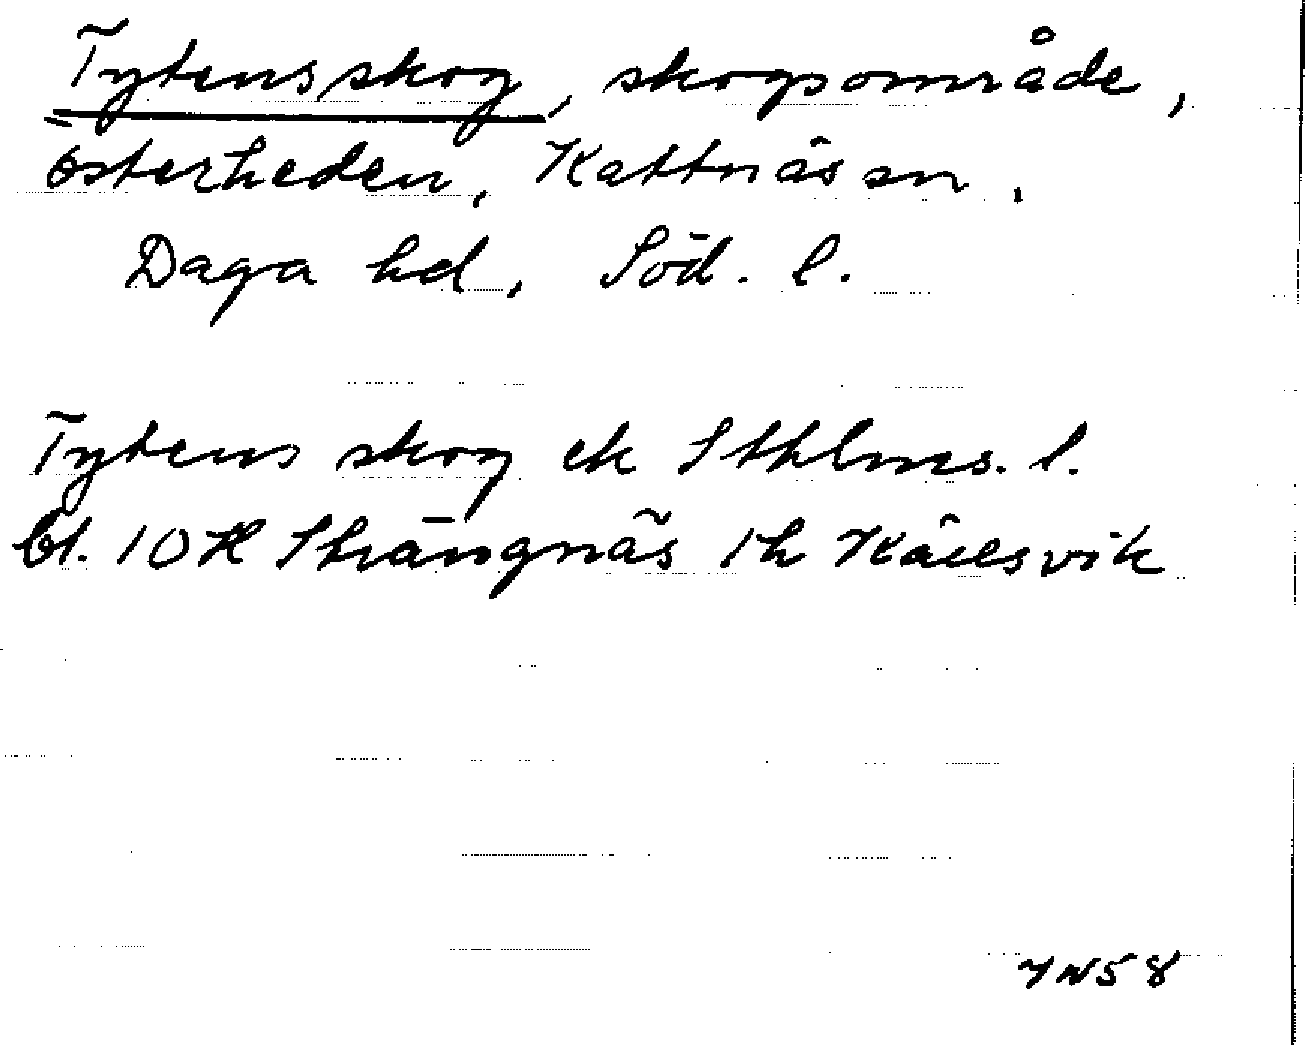 Tytensskog, skogsområde,
Österheden, Kattnäs sn,
Daga hd, Söd. l.
Tytens skog ek Sthlms. l.
bl. 10H Strängnäs 1h